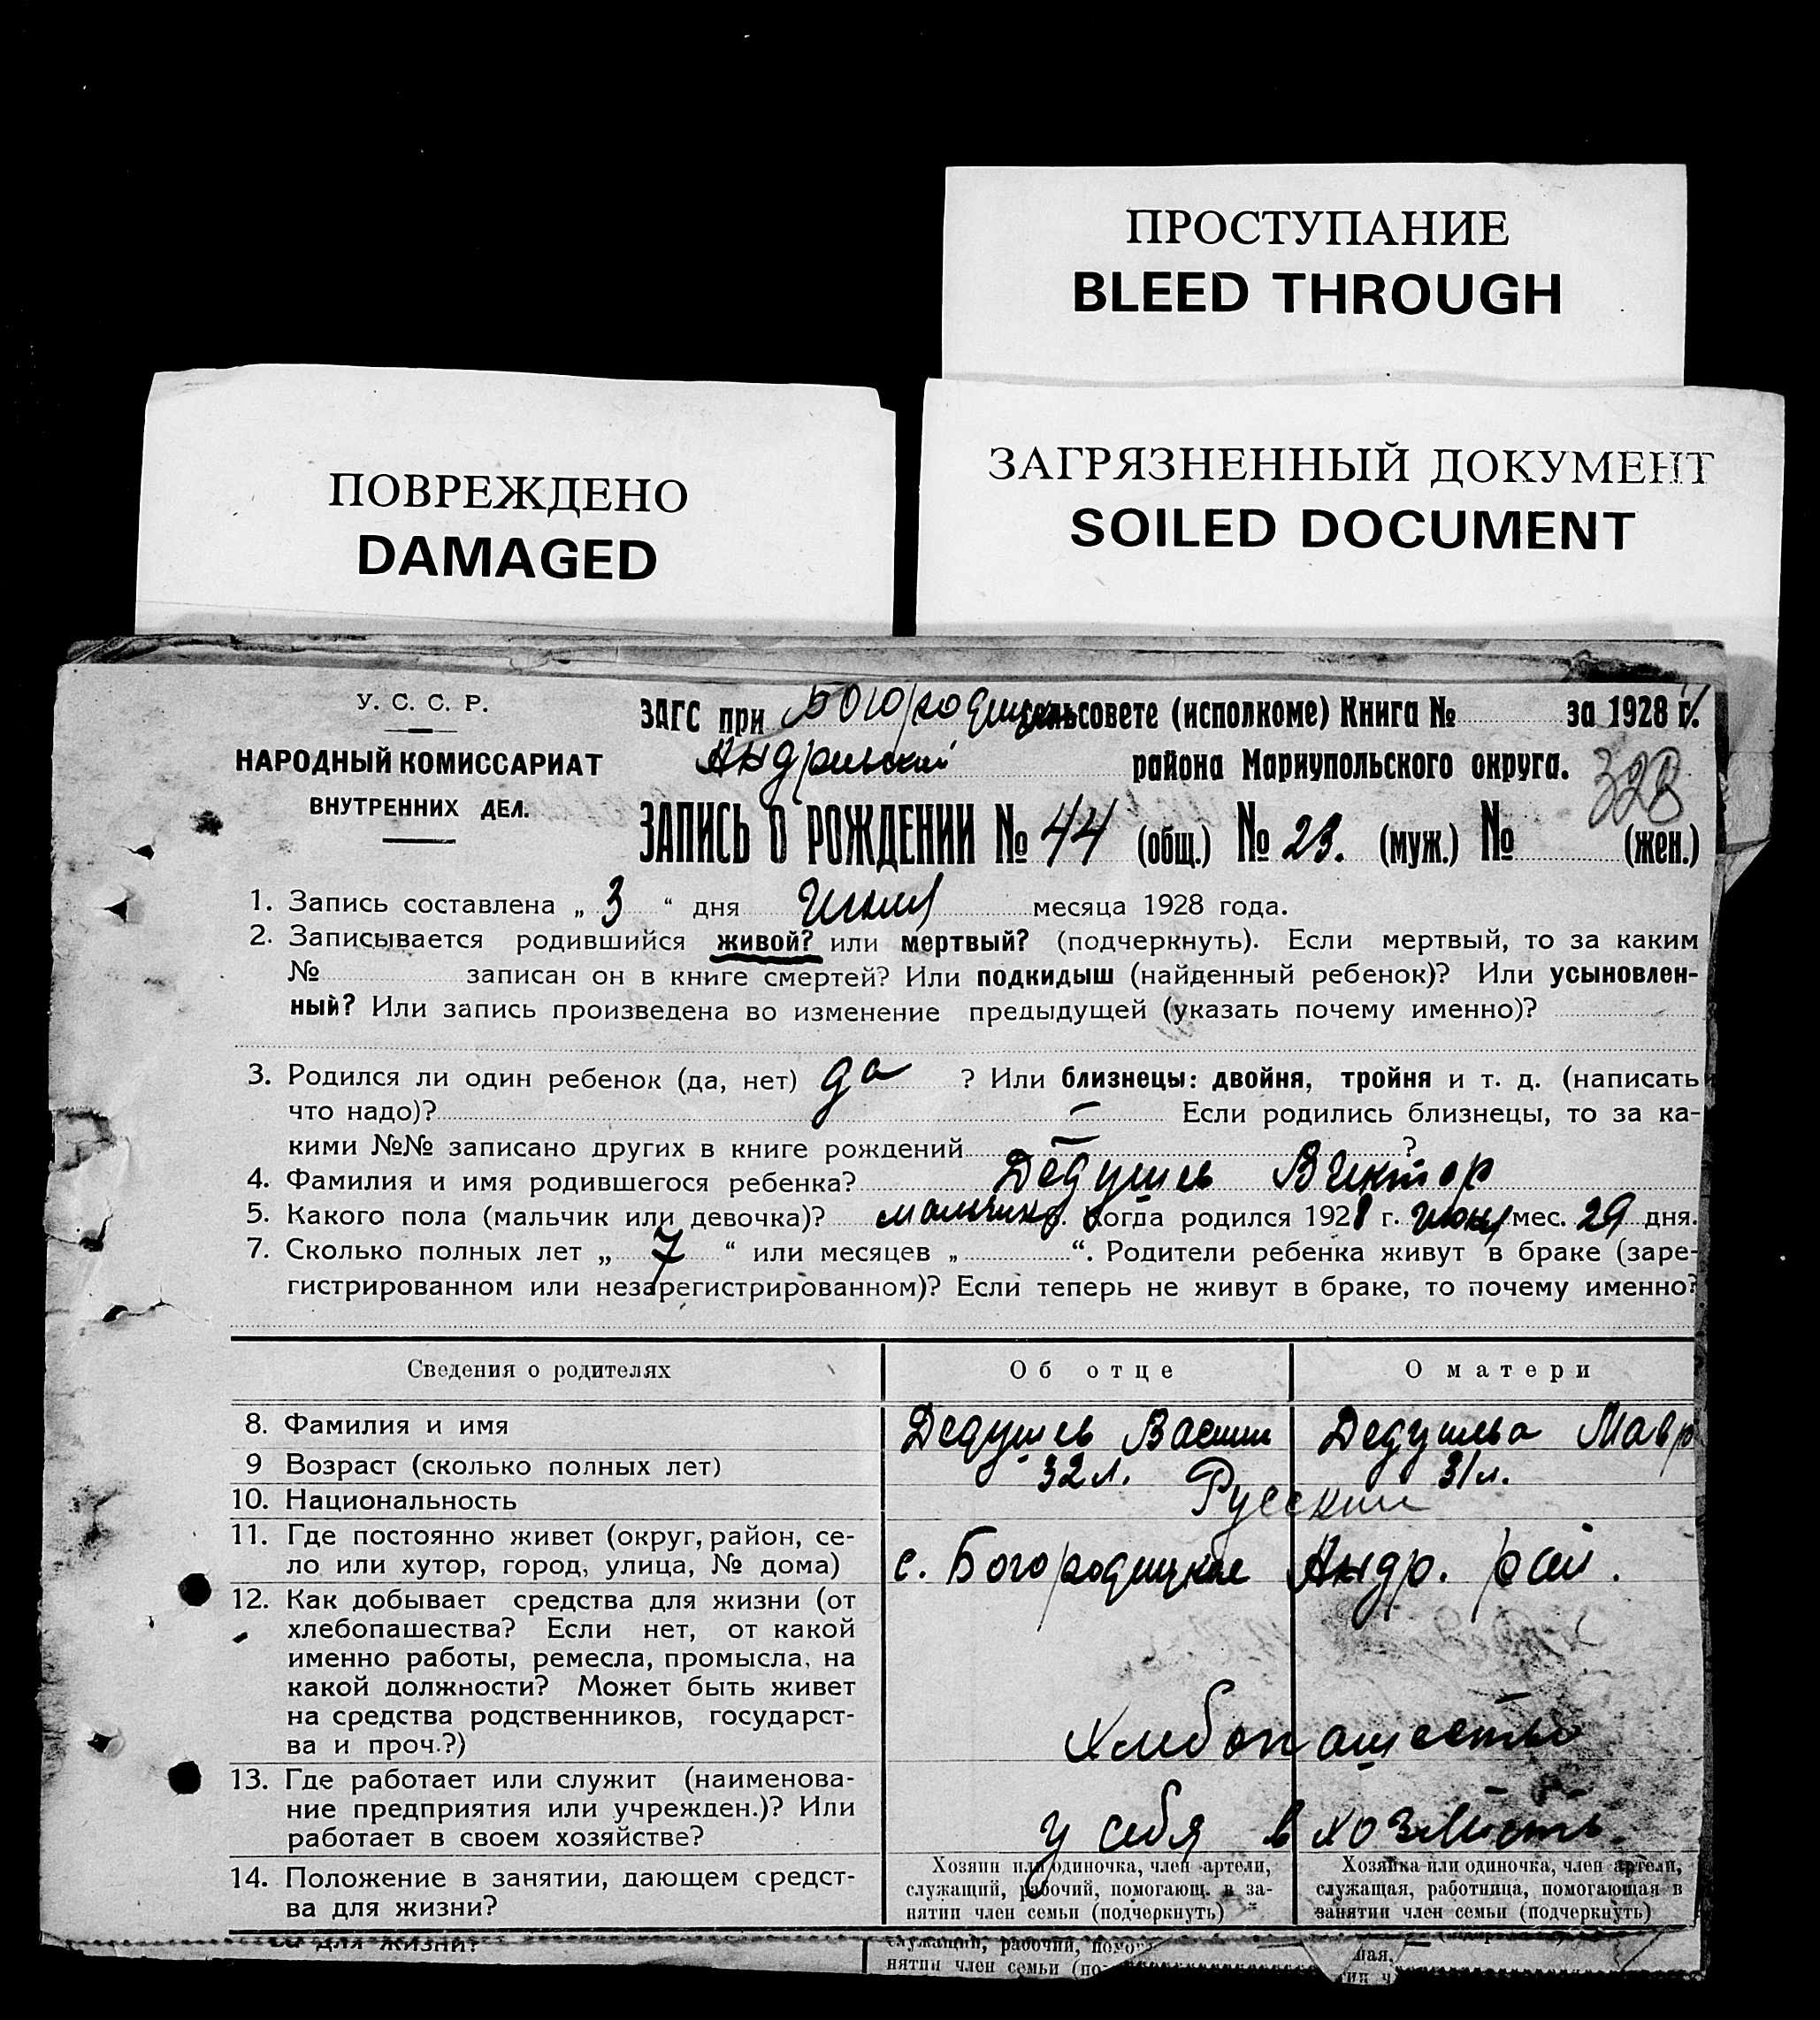 ПРОСТУПАНИЕ
BLEED THROUGH
ПОВРЕЖДЕНО
DAMAGED
ЗАГРЯЗНЕННЫЙ ДОКУМЕНТ
SOILED DOCUMENT
У. С. С. Р.
НАРОДНЫЙ КОМИССАРИАТ
ВНУТРЕННИХ ДЕЛ.
ЗАГС при сельсовете (исполкоме) Книга № за 1928 г.
района Мариупольского округа.
328
ЗАПИСЬ О РОЖДЕНИИ № 44 (общ.) № 23. (муж.) № (жен.)
1. Запись составлена „ 3 “ дня месяца 1928 года.
2. Записывается родившийся живой? или мертвый? (подчеркнуть). Если мертвый, то за каким
№ записан он в книге смертей? Или подкидыш (найденный ребенок)? Или усыновлен-
ный? Или запись произведена во изменение предыдущей (указать почему именно)?
3. Родился ли один ребенок (да, нет) да ? Или близнецы: двойня, тройня и т. д. (написать
что надо)? — Если родились близнецы, то за ка-
кими №№ записано других в книге рождений — ?
4. Фамилия и имя родившегося ребенка? Дедушев Виктор
5. Какого пола (мальчик или девочка)? мальчик. Когда родился 1928 г. июня мес. 29 дня.
7. Сколько полных лет „ 7 “ или месяцев „ “. Родители ребенка живут в браке (заре-
гистрированном или незарегистрированном)? Если теперь не живут в браке, то почему именно?
Сведения о родителях Об отце О матери
8. Фамилия и имя Дедушев Васили Дедушева Мавр
9 Возраст (сколько полных лет) 32 л. 31 л.
10. Национальность Русские
11. Где постоянно живет (округ, район, се-
ло или хутор, город, улица, № дома) с. Богородицкое Андр. рай.
12. Как добывает средства для жизни (от
хлебопашества? Если нет, от какой
именно работы, ремесла, промысла, на
какой должности? Может быть живет
на средства родственников, государст-
ва и проч.?) Хлебопашество
13. Где работает или служит (наименова-
ние предприятия или учрежден.)? Или
работает в своем хозяйстве? у себя в
14. Положение в занятии, дающем средст-
ва для жизни?
Хозяин или одиночка, член артели,
служащий, рабочий, помогающ. в за-
нятии член семьи (подчеркнуть)
Хозяйка или одиночка, член артели,
служащая, работница, помогающая в
занятии член семьи (подчеркнуть)
ва для жизни?
служащий, рабочий,
нятии член семьи